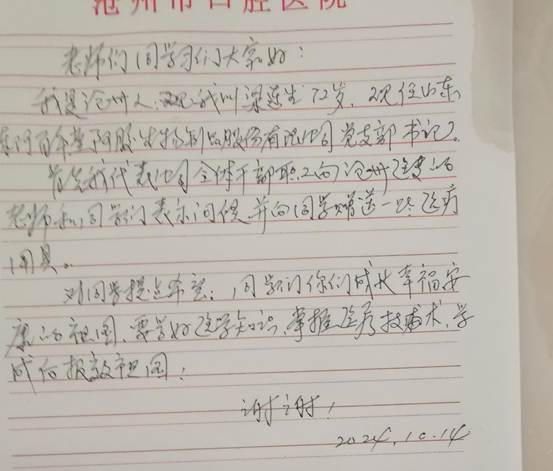 沧州市口腔医院
老师们同学们大家好：
我是沧州人，现我叫梁连生72岁，现任山东
东阿百年堂阿胶生物制品股份有限公司党支部书记。
首先我代表公司全体干部职工向沧州医专的
老师和同学们表示问候并向同学赠送一些医疗
用具。
对同学提点希望：同学们你们成长幸福安
康的祖国，要学好医学知识，掌握医疗技术，学
成后报效祖国！
谢谢！
2024.10.14